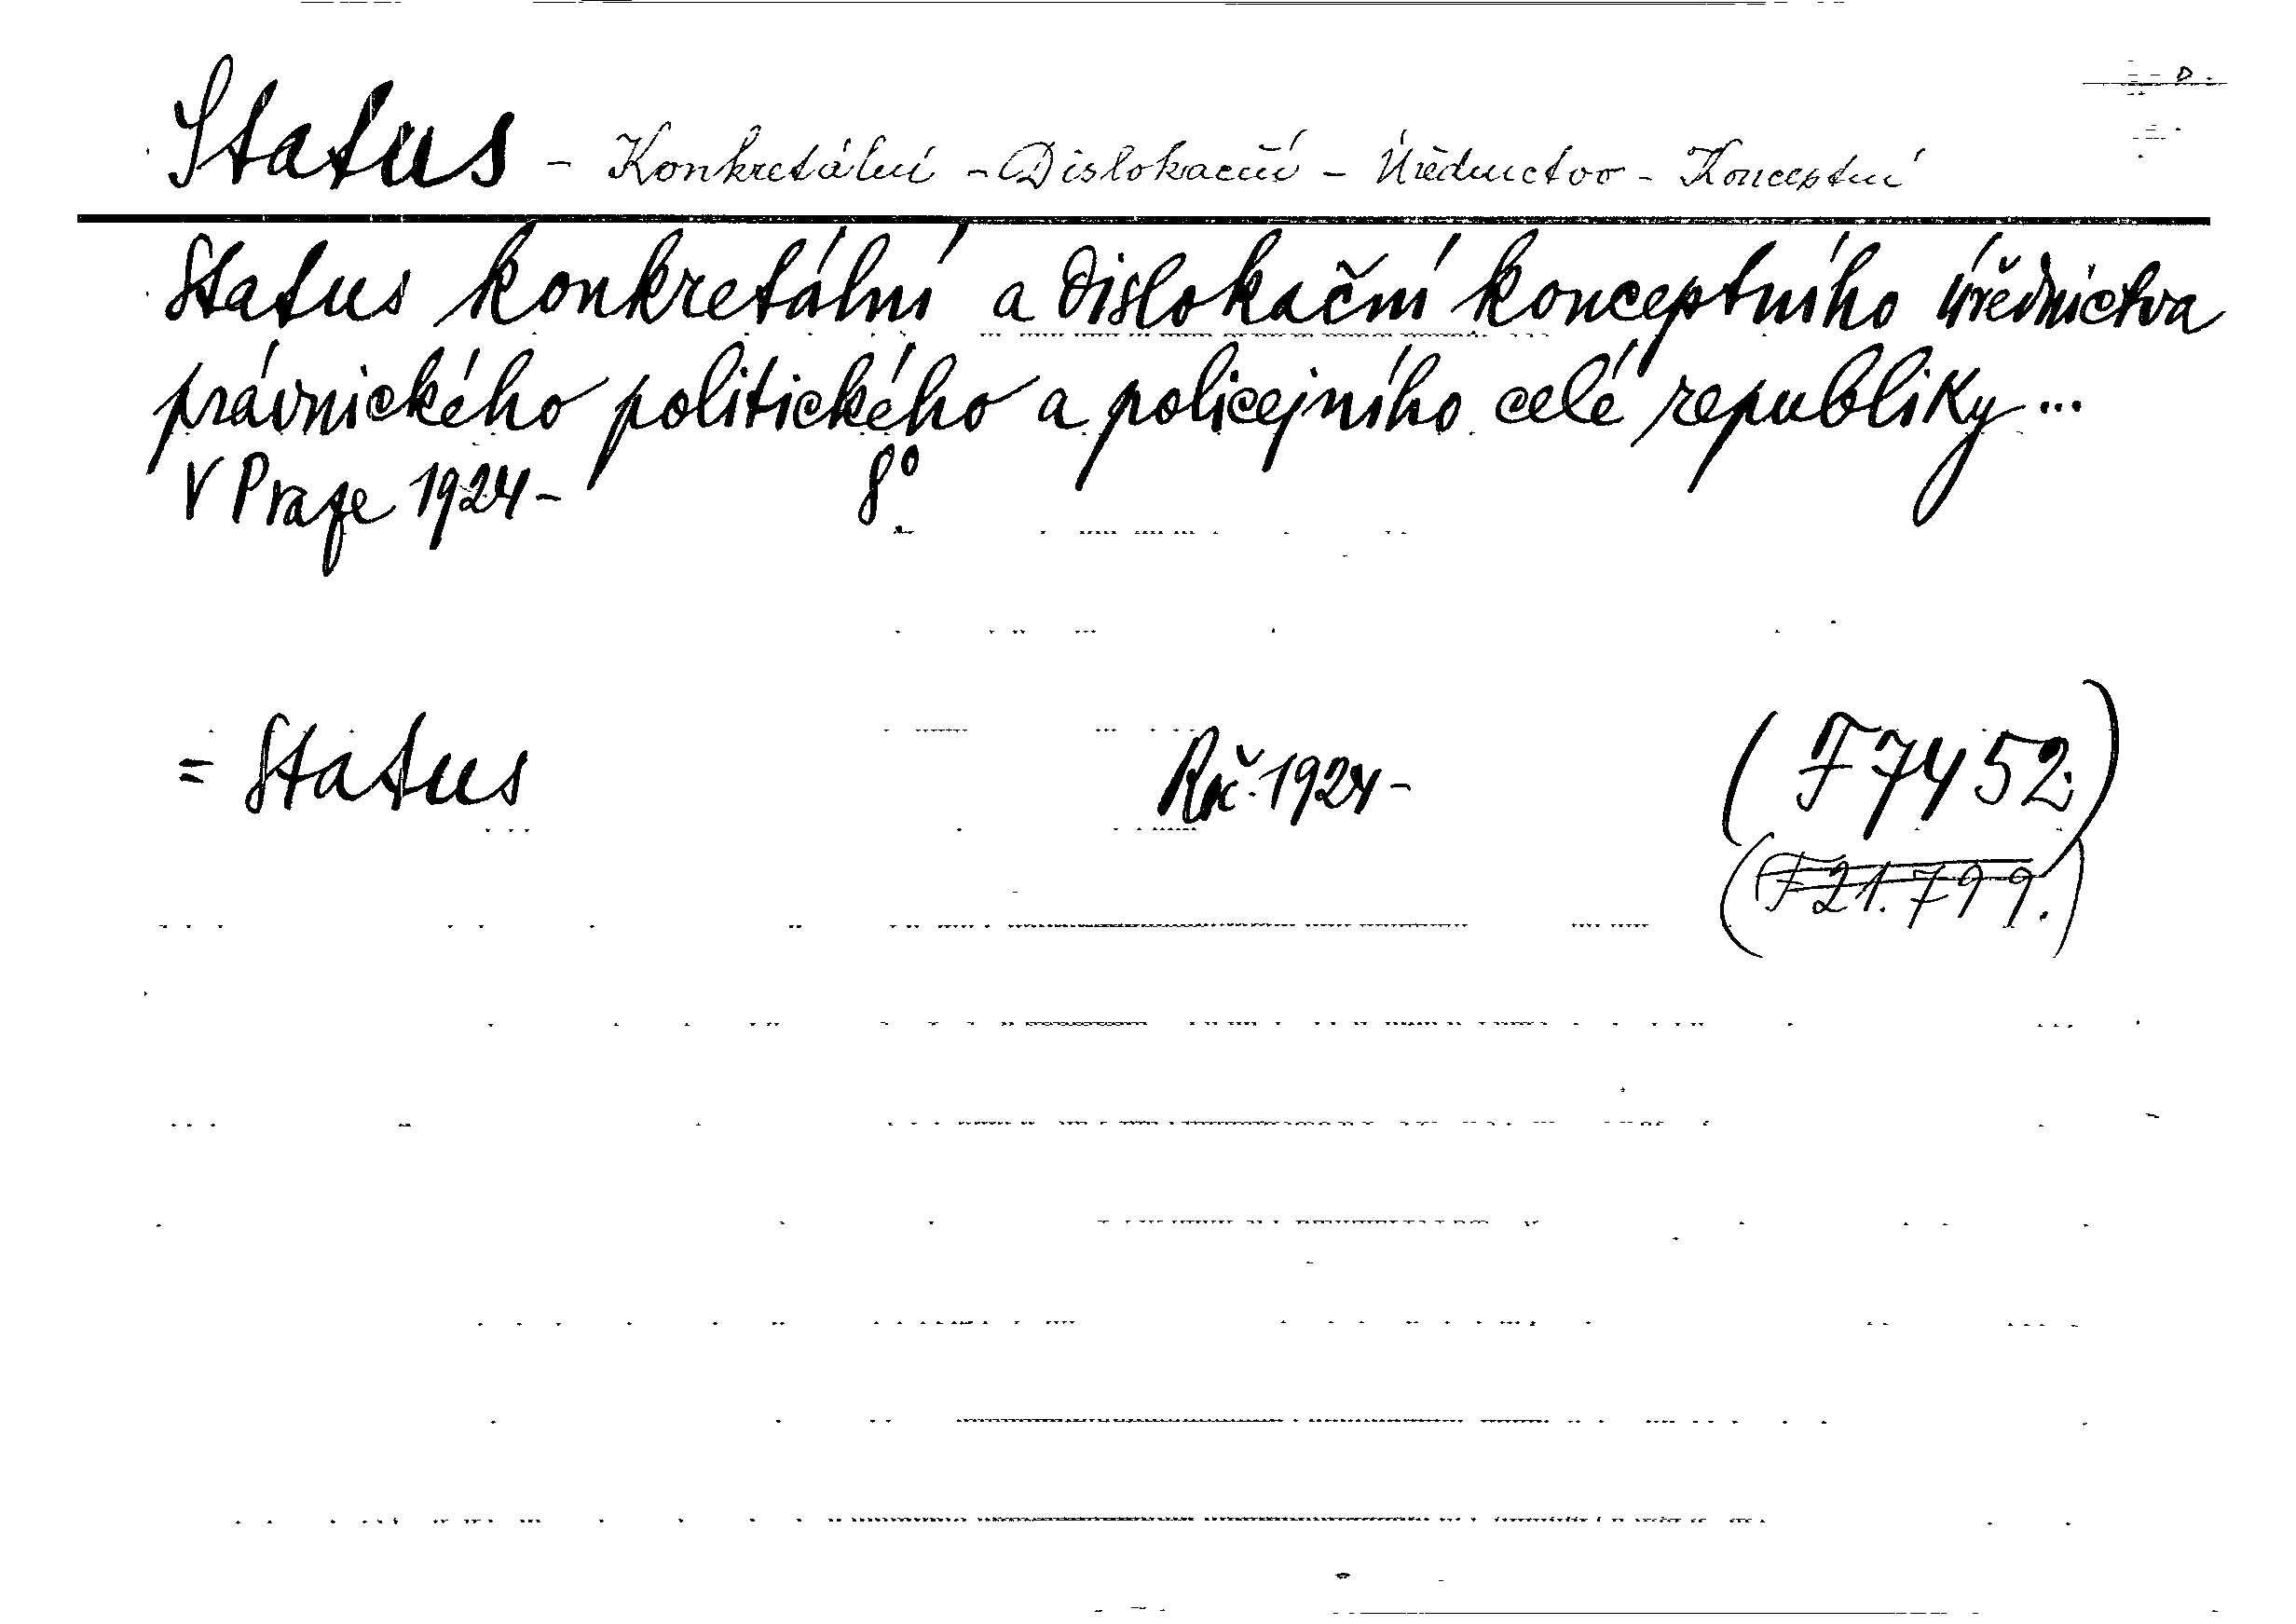 Status - Konkretální - Dislokační - Úřednictvo - Konceptní
Status konkretální a dislokační konceptního úřednictva
právnického politického a policejního celé republiky...
V Praze 1924- 8°
= Status Roč. 1924- (F 7452)
(F 21.799.)